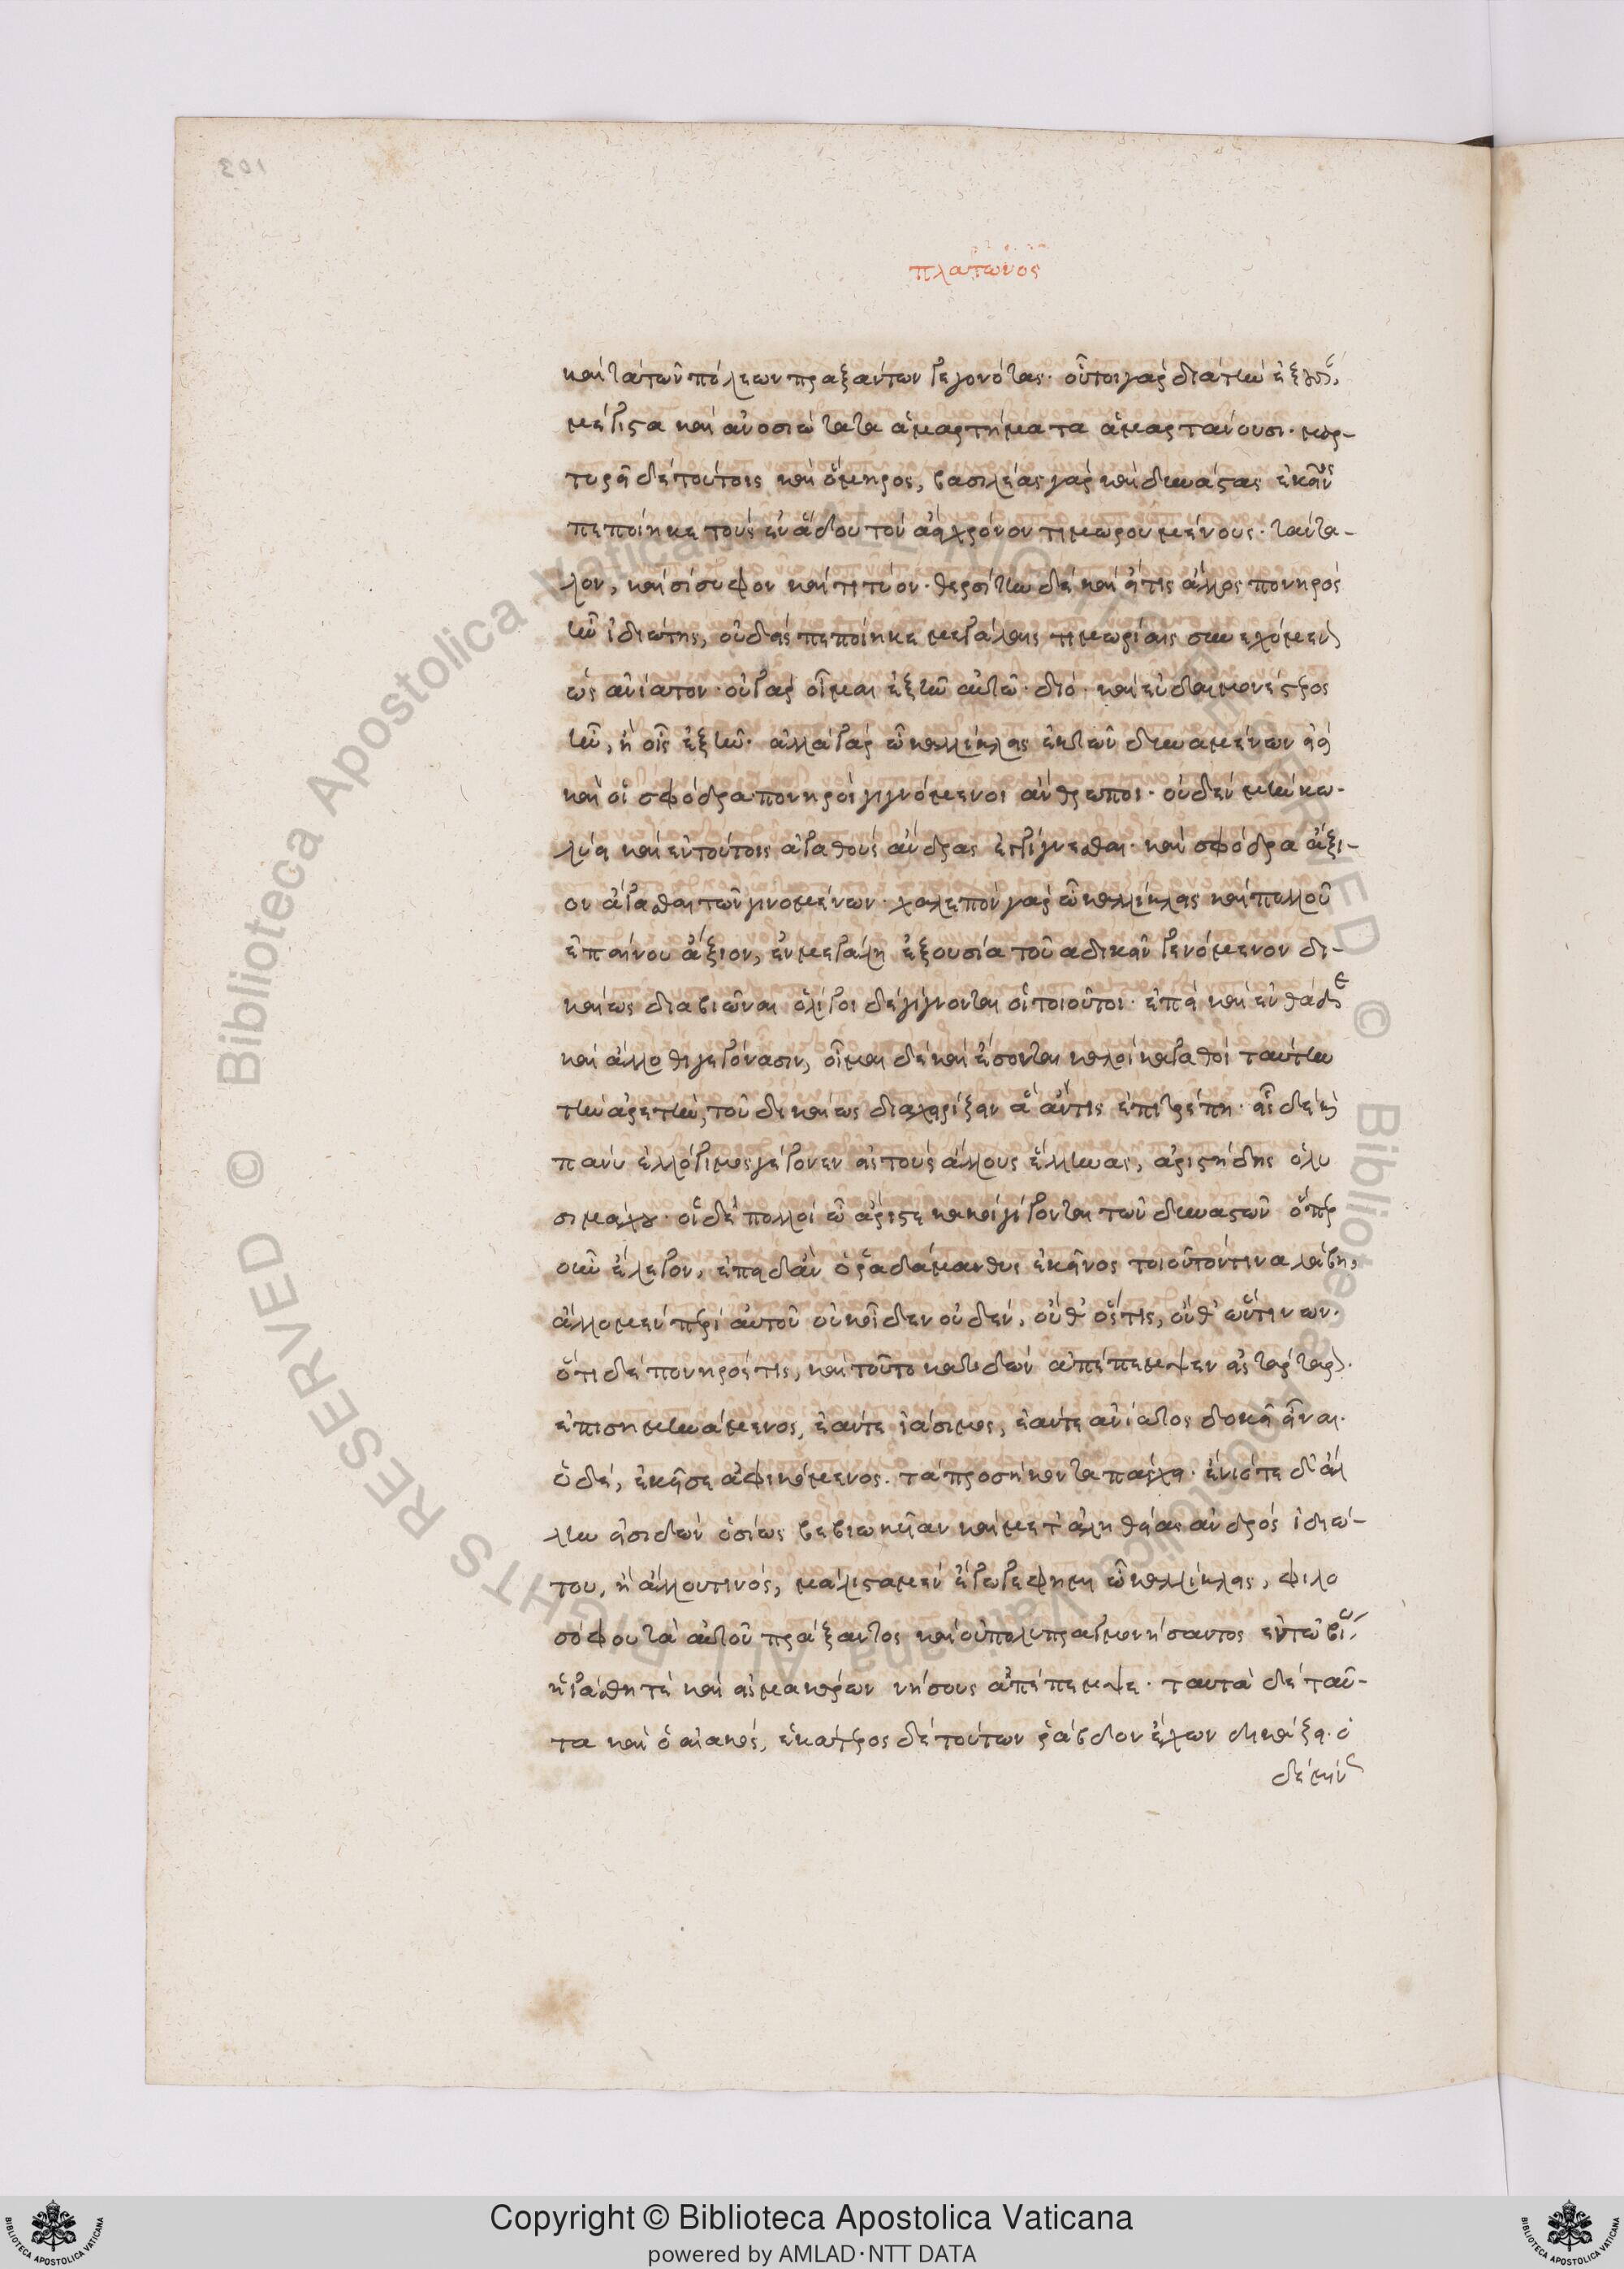 103
πλάτωνος
καὶ τὰ τῶν πόλεων πραξάντων γεγονότας· οὗτοι γὰρ διὰ τὴν ἐξουσίαν,
μέγιστα καὶ ἀνοσιώτατα ἁμαρτήματα ἁμαρτάνουσι· μαρ-
τυρεῖ δὲ τούτοις καὶ ὅμηρος, βασιλέας γὰρ καὶ δυνάστας ἐκεῖνος
πεποίηκε τοὺς ἐν ἅδου τὸν ἀεὶ χρόνον τιμωρουμένους· τάντα-
λον, καὶ σίσυφον καὶ τιτυόν· θερσίτην δὲ καὶ εἴ τις ἄλλος πονηρὸς
ἦν ἰδιώτης, οὐδεὶς πεποίηκε μεγάλαις τιμωρίαις συνεχόμενον
ὡς ἀνίατον· οὐ γὰρ οἶμαι ἐξῆν αὐτῶ· διὸ· καὶ εὐδαιμονέστερος
ἦν, ἢ οἷς ἐξῆν· ἀλλὰ γὰρ ὦ καλλίκλεις ἐκ τῶν δυναμένων εἰσὶ
καὶ οἱ σφόδρα πονηροὶ γιγνόμενοι ἄνθρωποι· οὐδὲν μὴν κω-
λύει καὶ ἐν τούτοις ἀγαθοὺς ἄνδρας ἐγγίγνεσθαι· καὶ σφόδρα ἄξι-
ον ἄγασθαι τῶν γινομένων· χαλεπὸν γὰρ ὦ καλλίκλεις καὶ πολλοῦ
ἐπαίνου ἄξιον, ἐν μεγάλη ἐξουσία τοῦ ἀδικεῖν γενόμενον δι-
καίως διαβιῶναι ὀλίγοι δὲ γίγνονται οἱ τοιοῦτοι· ἐπεὶ καὶ ἐνθάδε
καὶ ἄλλοθι γεγόνασιν, οἶμαι δὲ καὶ ἔσονται καλοὶ κἀγαθοὶ ταύτην
τὴν ἀρετὴν, τοῦ δικαίως διαχειρίζειν ἃ ἄν τις ἐπιτρέπη· εἷς δὲ καὶ
πάνυ ἐλλόγιμος γέγονεν εἰς τοὺς ἄλλους ἕλληνας, ἀριστείδης ὁ λυ
σιμάχου· οἱ δὲ πολλοὶ ὦ ἄριστε κακοὶ γίγονται τῶν δυναστῶν ὅπερ
οὖν ἔλεγον, ἐπειδὰν ὁ ῥαδάμανθυς ἐκεῖνος τοιοῦτόν τινα λάβη,
ἄλλο μὲν περὶ αὐτοῦ οὐκ οἶδεν οὐδὲν, οὔθ' ὅστις, οὔθ' ὧντινων·
ὅτι δὲ πονηρός τις, καὶ τοῦτο κατιδὼν ἀπέπεμψεν εἰς τάρταρον·
ἐπισημηνάμενος, ἐάν τε ἰάσιμος, ἐάν τε ἀνίατος δοκῆ εἶναι·
ὁ δὲ, ἐκεῖσε ἀφικόμενος· τὰ προσήκοντα πάσχει· ἐνίοτε δ' ἄλ
λην εἰσιδὼν ὁσίως βεβιωκυῖαν καὶ μετ' ἀληθείας ἀνδρὸς ἰδιώ-
του, ἢ ἄλλου τινὸς, μάλιστα μὲν ἔγωγέ φημι ὦ καλλίκλεις, φιλο
σόφου τὰ αὑτοῦ πράξαντος καὶ οὐ πολυπραγμονήσαντος ἐν τῶ βίω,
ἠγάσθη τὲ καὶ εἰς μακάρων νήσους ἀπέπεμψε· ταυτὰ δὲ ταῦ-
τα καὶ ὁ αἰακὸς, ἑκάτερος δὲ τούτων ῥάβδον ἔχων δικάζει· ὁ
δὲ μίνως
© Biblioteca Apostolica Vaticana ALL RIGHTS RESERVED © Biblioteca Apostolica Vaticana ALL RIGHTS RESERVED
Copyright © Biblioteca Apostolica Vaticana
powered by AMLAD·NTT DATA
BIBLIOTECA APOSTOLICA VATICANA
BIBLIOTECA APOSTOLICA VATICANA